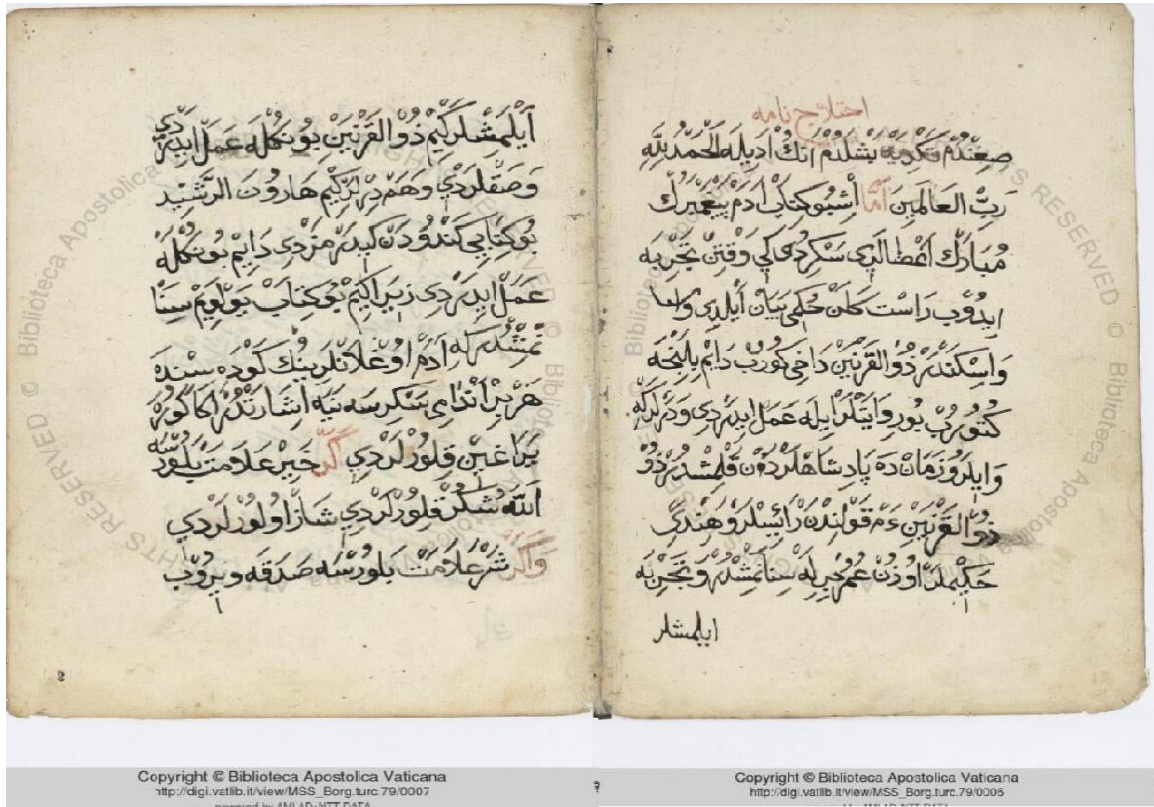 احتلاج نامه
صغندم تكريه بشلدم انك اديله الحمد لله
رب العالمين اما اشبو كتاب ادم پيغمبرك
مبارك اعضالرى سكردى كى وقتن تجربه
ايدوب راست كلن حكمى بيان ايلدى
واسكندر ذو القرنين داخى كورب دايم يلينجه
كتورب بو روايتلر ايله عمل ايدردى و درلركه
وايلرو زمان ده پادشاهلردن قلمشدر ذو
ذو القرنين قولندن رايسلر و هندى
حكيملر اوزن عمر بريله سنامشدر و تجربه
ايلمشلر
ايلمشلر كيم ذو القرنين بونكله عمل ايدردى
و صقلردى و هم درلركيم هارون الرشيد
بو كتابى كندودن كيدرمزدى دايم بونكله
عمل ايدردى زيرا كيم بو كتاب
ادم اوغلانلرينك كوده سنده
هر بر اندامى سكرسه نيه اشارتدر اكا كوره
يراغين قلورلردى كر خير علامت بلورسه
الله شكر قلورلردى شاذ اولورلردى
واكر شر علامت بلورسه صدقه ويروب
2
Copyright © Biblioteca Apostolica Vaticana
http://digi.vatlib.it/view/MSS_Borg.turc.79/0007
Copyright © Biblioteca Apostolica Vaticana
http://digi.vatlib.it/view/MSS_Borg.turc.79/0006